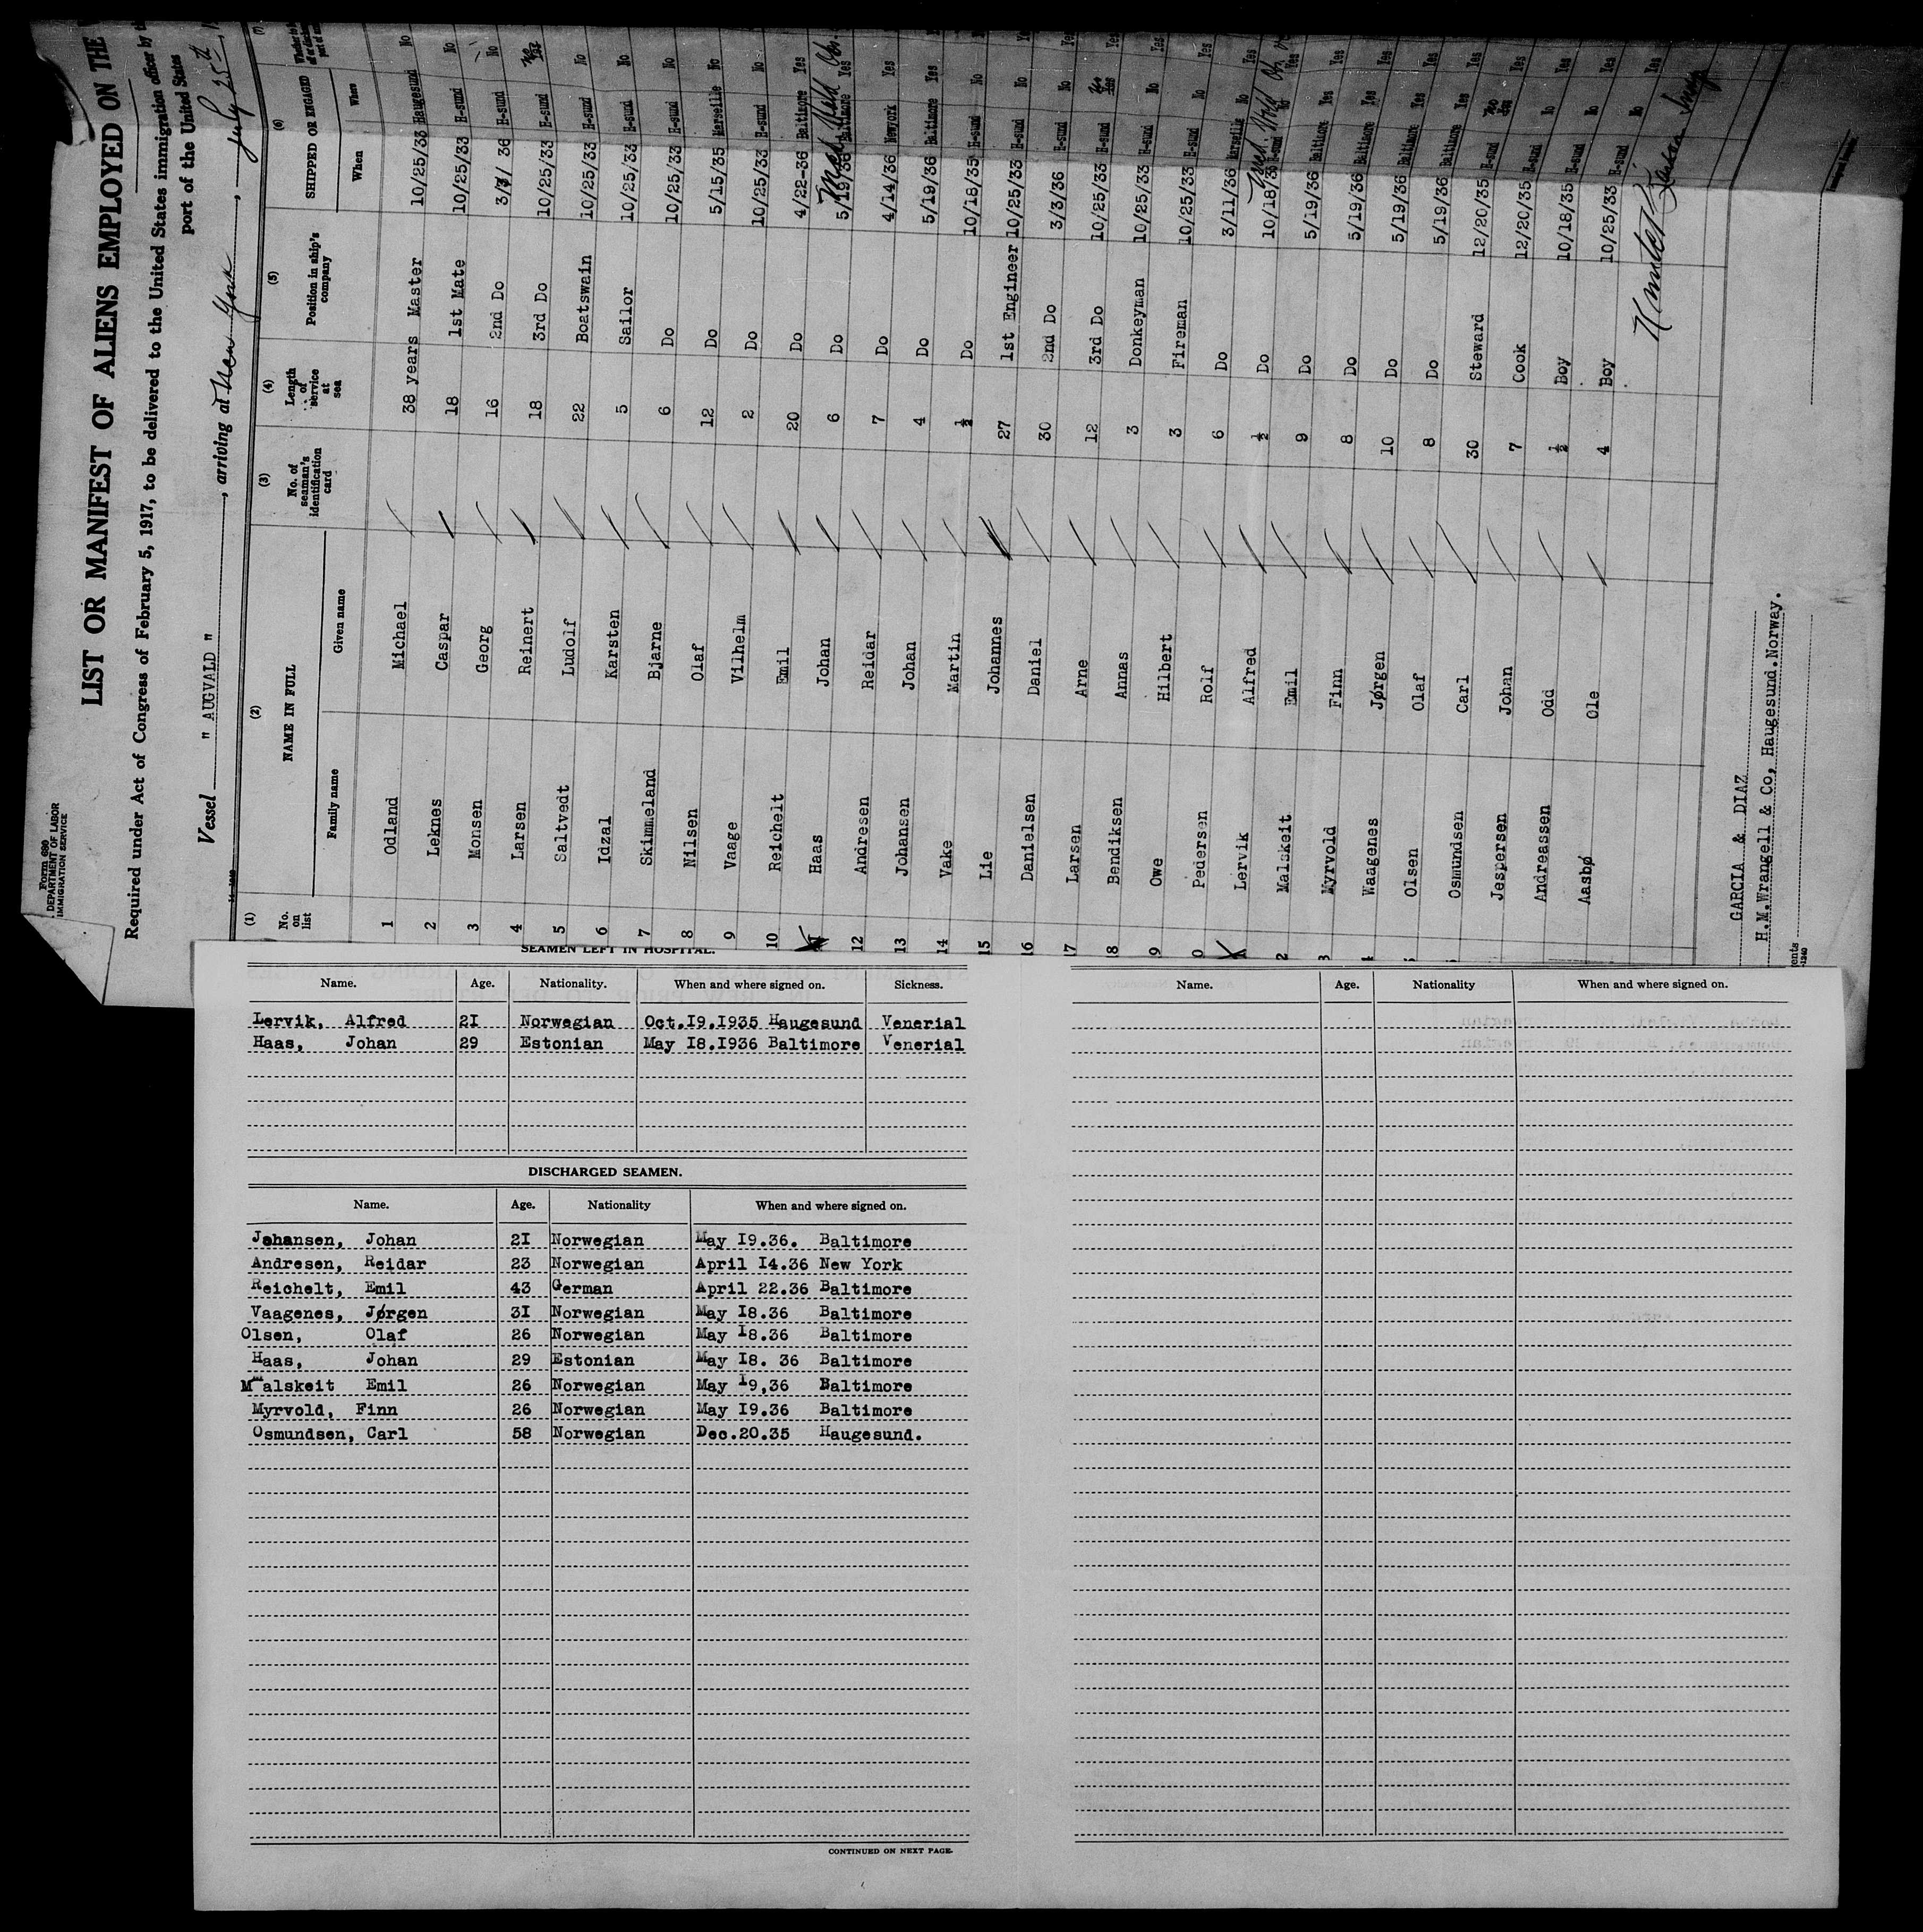 Form 680
DEPARTMENT OF LABOR
IMMIGRATION SERVICE
LIST OR MANIFEST OF ALIENS EMPLOYED ON THE
Required under Act of Congress of February 5, 1917, to be delivered to the United States immigration officer by
port of the United States
Vessel " AUGVALD ", arriving at New York, July 25th
(1) (2) (3) (4) (5) (6) (7)
No. on list NAME IN FULL No. of seaman's identification card Length of service at sea Position in ship's company SHIPPED OR ENGAGED
Family name Given name When
1 Odland Michael 38 years Master 10/25/33 Haugesund No
2 Leknes Caspar 18 1st Mate 10/25/33 H-sund No
3 Monsen Georg 16 2nd Do 3/3/ 36 H-sund No
4 Larsen Reinert 18 3rd Do 10/25/33 H-sund
5 Saltvedt Ludolf 22 Boatswain 10/25/33 H-sund No
6 Idzal Karsten 5 Sailor 10/25/33 H-sund No
7 Skimmeland Bjarne 6 Do 10/25/33 H-sund No
8 Nilsen Olaf 12 Do 5/15/35 Marseille No
9 Vaage Vilhelm 2 Do 10/25/33 H-sund No
10 Reichelt Emil 20 Do 4/22-36 Baltimore Yes
Haas Johan 6 Do 5/19/36 Baltimore Yes
12 Andresen Reidar 7 Do 4/14/36 Newyork Yes
13 Johansen Johan 4 Do 5/19/36 Baltimore Yes
14 Vake Martin ½ Do 10/18/35 H-sund No
15 Lie Johannes 27 1st Engineer 10/25/33 H-sund No
16 Danielsen Daniel 30 2nd Do 3/3/36 H-sund No
17 Larsen Arne 12 3rd Do 10/25/33 H-sund
18 Bendiksen Annas 3 Donkeyman 10/25/33 H-sund No
9 Owe Hilbert 3 Fireman 10/25/33 H-sund No
0 Pedersen Rolf 6 Do 3/11/36 Marseille No
Lervik Alfred ½ Do 10/18/35 H-sund No
2 Malskeit Emil 9 Do 5/19/36 Baltimore Yes
3 Myrvold Finn 8 Do 5/19/36 Baltimore Yes
4 Waagenes Jørgen 10 Do 5/19/36 Baltimore Yes
Olsen Olaf 8 Do 5/19/36 Baltimore Yes
Osmundsen Carl 30 Steward 12/20/35 H-sund
Jespersen Johan 7 Cook 12/20/35 H-sund No
Andreassen Odd ½ Boy 10/18/35 H-sund No
Aasbø Ole 4 Boy 10/25/33 H-sund No
GARCIA & DIAZ
H.M.Wrangell & Co, Haugesund.Norway.
SEAMEN LEFT IN HOSPITAL.
Name. Age. Nationality. When and where signed on. Sickness.
Lervik, Alfred 21 Norwegian Oct.19.1935 Haugesund Venerial
Haas, Johan 29 Estonian May 18.1936 Baltimore Venerial
DISCHARGED SEAMEN.
Name. Age. Nationality When and where signed on.
Johansen, Johan 21 Norwegian May 19.36. Baltimore
Andresen, Reidar 23 Norwegian April 14.36 New York
Reichelt, Emil 43 German April 22.36 Baltimore
Vaagenes, Jørgen 31 Norwegian May 18.36 Baltimore
Olsen, Olaf 26 Norwegian May 18.36 Baltimore
Haas, Johan 29 Estonian May 18. 36 Baltimore
Malskeit Emil 26 Norwegian May 19,36 Baltimore
Myrvold, Finn 26 Norwegian May 19.36 Baltimore
Osmundsen, Carl 58 Norwegian Dec.20.35 Haugesund.
CONTINUED ON NEXT PAGE.
Name. Age. Nationality When and where signed on.